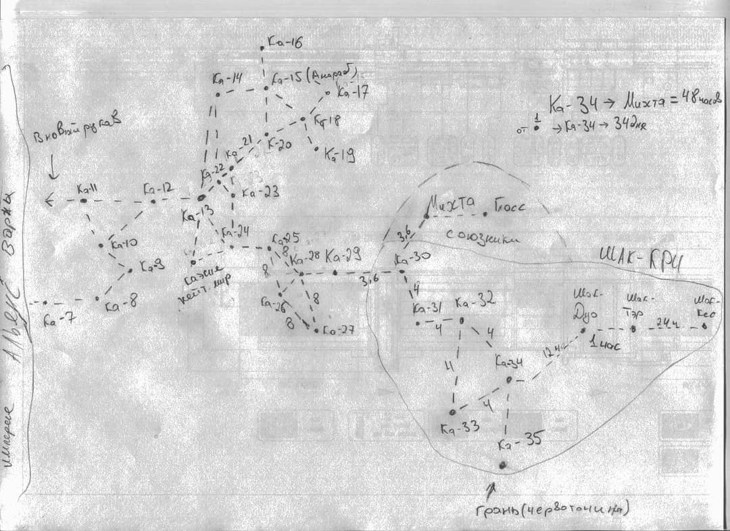 Ка-16
Ка-14
Ка-15 (Амраб)
Ка-17
Ка-34 → Михта = 48 часов
от 1 → Ка-34 → 34 дня
В новый рукав
Ка-18
Ка-21
К-20
Ка-19
Ка-22
Ка-11
Ка-12
Ка-23
Ка-13
Михта
Босс
3,6
союзники
Ка-10
Ка-24
Ка-25
ШАК-КРИ
Ка-9
8
8
Ка-28
Ка-29
Ка-30
3,6
мир
8
4
Ка-7
Ка-8
Ка-26
8
8
Ка-27
Ка-31
4
Ка-32
4
4
Шак-Дуо
Шак-Тэо
Шак-Кео
1 час
24 ч
12 ч
Ка-34
4
Ка-33
Ка-35
Грань (червоточина)
империя Альянс Варжи